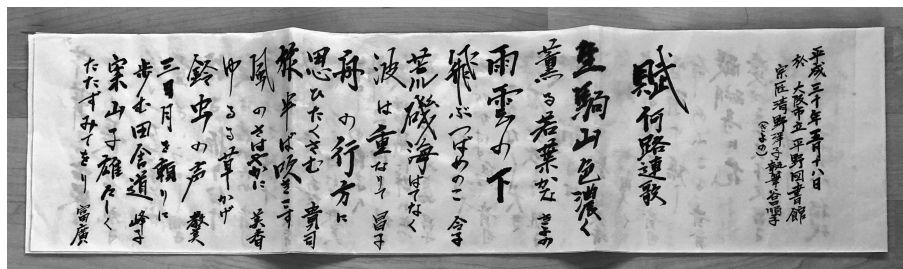 平成三十年五月十八日
於 大阪市立平野図書館
宗匠 清野洋子 執筆 谷順子
(きよの)
賦何路連歌
生駒山色濃く
薫る若葉かな きよの
雨雲の下
飛ぶつばめのこ 令子
荒磯海はてなく
波は重なりて 昌子
舟の行方に
思ひたくさむ 貴司
旅半ば吹きこす
風のさはやかに 美香
ゆるる草かげ
鈴虫の声
三日月を頼りに
歩む田舎道 峰子
案山子雄々しく
たたすみてをり 富廣